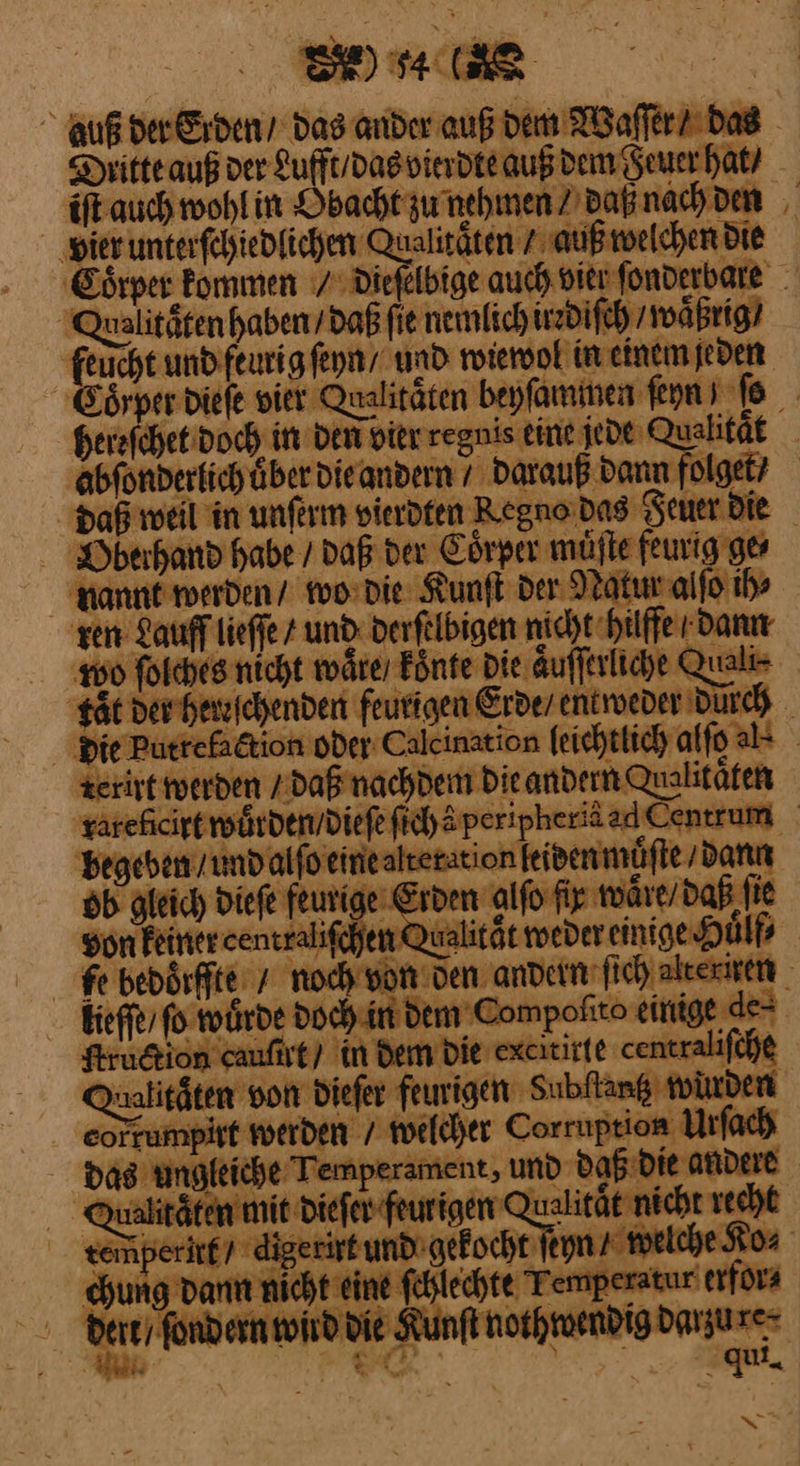 54
auß der Erden / das ander auß dem Waſſer / das
Dritte auß der Lufft / das vierdte auß dem Feuer hat /
iſt auch wohl in Obacht zu nehmen / daß nach den
vier unterſchiedlichen Qualitaͤten / auß welchen die
Coͤrper kommen / dieſelbige auch vier ſonderbare
Qualitaͤten haben / daß ſie nemlich irꝛdiſch / waͤßrig /
feucht und feurig ſeyn / und wiewol in einem jeden
Coͤrper dieſe vier Qualitaͤten beyſammen ſeyn / ſo
herꝛſchet doch in den vier regnis eine jede Qualitaͤt
abſonderlich uͤber die andern / darauß dann folget /
daß weil in unſerm vierdten Regno das Feuer die
Oberhand habe / daß der Coͤrper muͤſte feurig ge-
nannt werden / wo die Kunſt der Natur alſo ih-
ren Lauff lieſſe / und derſelbigen nicht hilffe / dann
wo ſolches nicht waͤre / koͤnte die aͤuſſerliche Quali-
taͤt der herꝛſchenden feurigen Erde / entweder durch
die Putrefaction oder Calcination leichtlich alſo al-
terirt werden / daß nachdem die andern Qualitaͤten
rareficirt wuͤrden / dieſe ſich â peripheriâ ad Centrum
begeben / und alſo eine alteration leiden muͤſte / dann
ob gleich dieſe feurige Erden alſo fix waͤre / daß ſie
von keiner centraliſchen Qualitaͤt weder einige Huͤlf-
fe bedoͤrffte / noch von den andern ſich alteriren
lieſſe / ſo wuͤrde doch in dem Compoſito einige de-
ſtruction cauſirt / in dem die excitirte centraliſche
Qualitaͤten von dieſer feurigen Subſtantz wuͤrden
corrumpirt werden / welcher Corruption Urſach
das ungleiche Temperament, und daß die andere
Qualitaͤten mit dieſer feurigen Qualitaͤt nicht recht
temperirt / digerirt und gekocht ſeyn / welche Ko-
chung dann nicht eine ſchlechte Temperatur erfor-
dert / ſondern wird die Kunſt nothwendig darzu re-
qui-